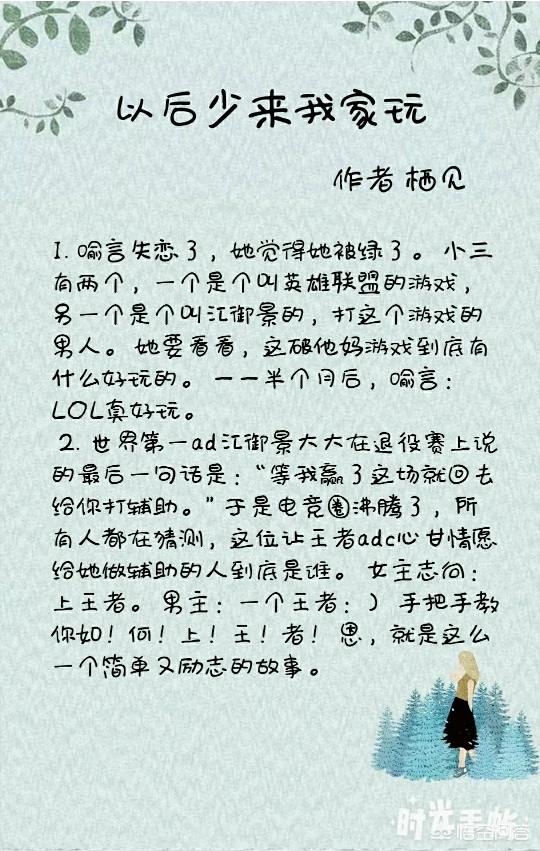 以后少来我家玩
作者 栖见
1. 喻言失恋了，她觉得她被绿了。 小三
有两个，一个是个叫英雄联盟的游戏，
另一个是个叫江御景的，打这个游戏的
男人。 她要看看，这破他妈游戏到底有
什么好玩的。 一一半个月后，喻言：
LOL真好玩。
2. 世界第一ad江御景大大在退役赛上说
的最后一句话是：“等我赢了这场就回去
给你打辅助。”于是电竞圈沸腾了，所
有人都在猜测，这位让王者adc心甘情愿
给她做辅助的人到底是谁。 女主志向：
上王者。 男主：一个王者：）手把手教
你如！何！上！王！者！ 恩，就是这么
一个简单又励志的故事。
时光手帐
悟空问答